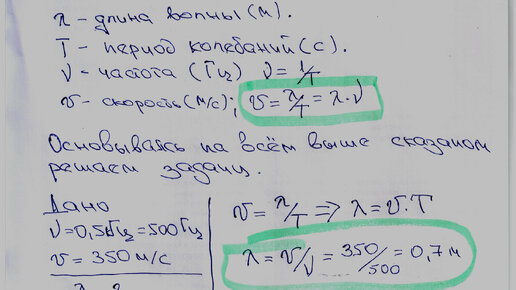 λ - длина волны (м).
T - период колебаний (с).
ν - частота (Гц) ν = 1/T
v - скорость (м/с); v = λ/T = λ·ν
Основываясь на всём выше сказаном
решаем задачи.
Дано
ν = 0,5кГц = 500 Гц
v = 350 м/с
λ - ?
v = λ/T => λ = v·T
λ = v/ν = 350/500 = 0,7 м